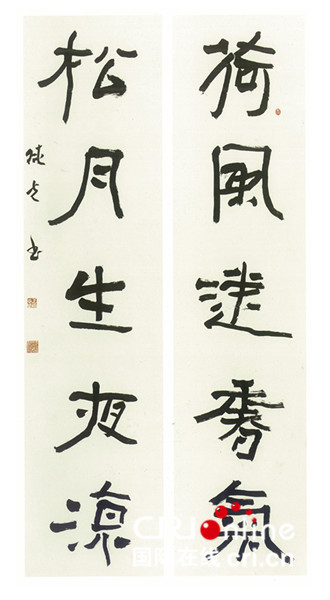 荷風送香氣
松月生夜涼
书
CRIonline
国际在线 cri.cn